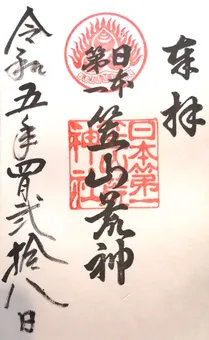 奉拝
日本第一
笠山荒神
日本第一
神社
令和五年四月弐拾八日